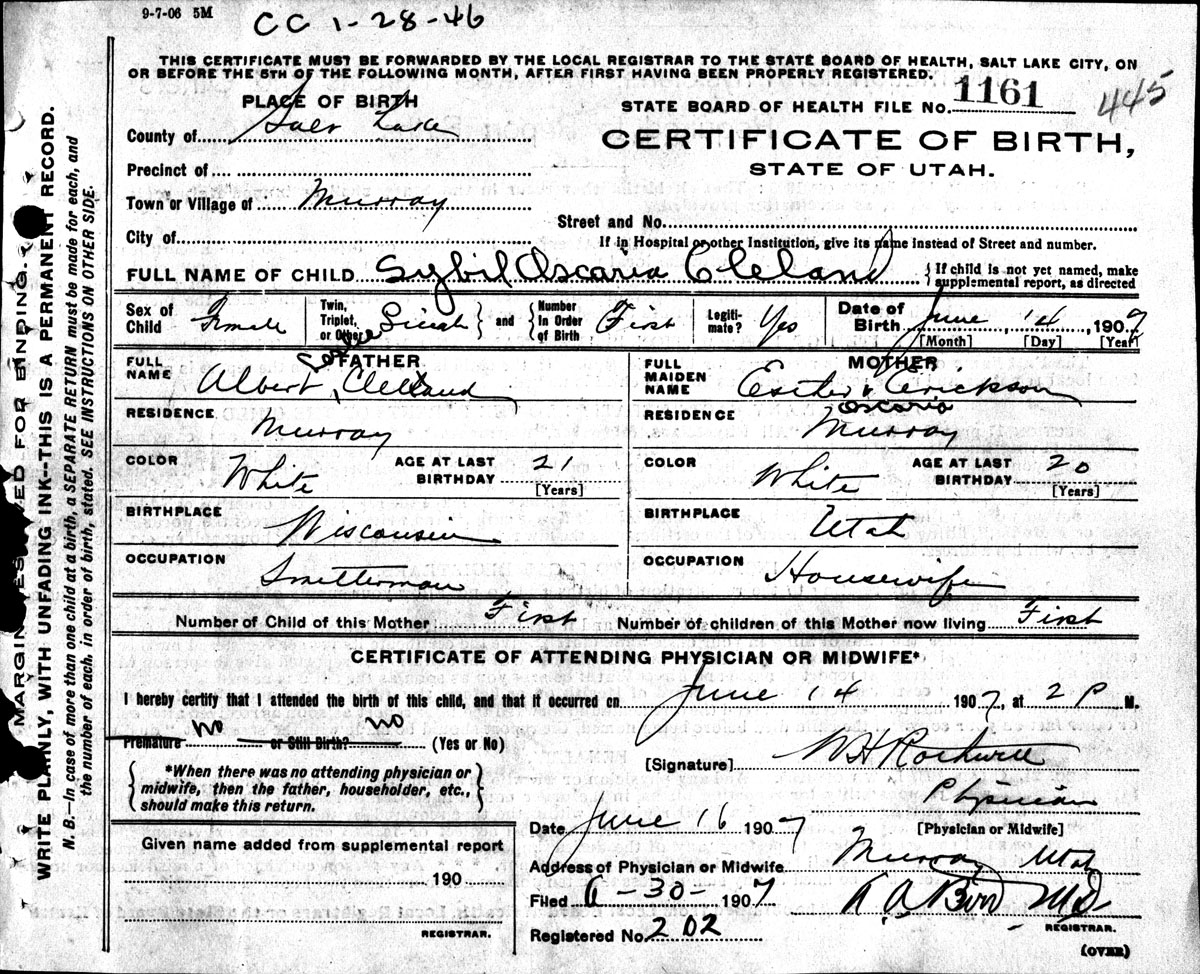 9-7-06 5M
CC 1-28-46
THIS CERTIFICATE MUST BE FORWARDED BY THE LOCAL REGISTRAR TO THE STATE BOARD OF HEALTH, SALT LAKE CITY, ON
OR BEFORE THE 5TH OF THE FOLLOWING MONTH, AFTER FIRST HAVING BEEN PROPERLY REGISTERED.
PLACE OF BIRTH
STATE BOARD OF HEALTH FILE No. 1161 445
County of Salt Lake
CERTIFICATE OF BIRTH,
STATE OF UTAH.
Precinct of
Town or Village of Murray
Street and No.
City of
If in Hospital or other Institution, give its name instead of Street and number.
FULL NAME OF CHILD Sybil Oscaria Cleland
{ If child is not yet named, make supplemental report, as directed
Sex of Child Female
Twin, Triplet, or Other
} and {
Number In Order of Birth First
Legitimate? Yes
Date of Birth June, 14, 1907
[Month] [Day] [Year]
FULL NAME
FATHER
Albert Cleland
FULL MAIDEN NAME
MOTHER
Esther Erickson
Oscaria
RESIDENCE Murray
RESIDENCE Murray
COLOR White
AGE AT LAST BIRTHDAY 21
[Years]
COLOR White
AGE AT LAST BIRTHDAY 20
[Years]
BIRTHPLACE Wisconsin
BIRTHPLACE Utah
OCCUPATION Smelterman
OCCUPATION Housewife
Number of Child of this Mother First
Number of children of this Mother now living First
CERTIFICATE OF ATTENDING PHYSICIAN OR MIDWIFE*
I hereby certify that I attended the birth of this child, and that it occurred on June 14 1907, at 2 P M.
no no
Premature or Still Birth? (Yes or No)
[Signature] W H Rothwell
{ *When there was no attending physician or midwife, then the father, householder, etc., should make this return. }
Physician
[Physician or Midwife]
Date June 16 1907
Given name added from supplemental report
190
REGISTRAR.
Address of Physician or Midwife Murray Utah
Filed 6-30-1907
R A Bird MD
REGISTRAR.
Registered No. 202
(OVER)
MARGIN RESERVED FOR BINDING.
WRITE PLAINLY, WITH UNFADING INK--THIS IS A PERMANENT RECORD.
N. B.—In case of more than one child at a birth, a SEPARATE RETURN must be made for each, and
the number of each, in order of birth, stated. SEE INSTRUCTIONS ON OTHER SIDE.